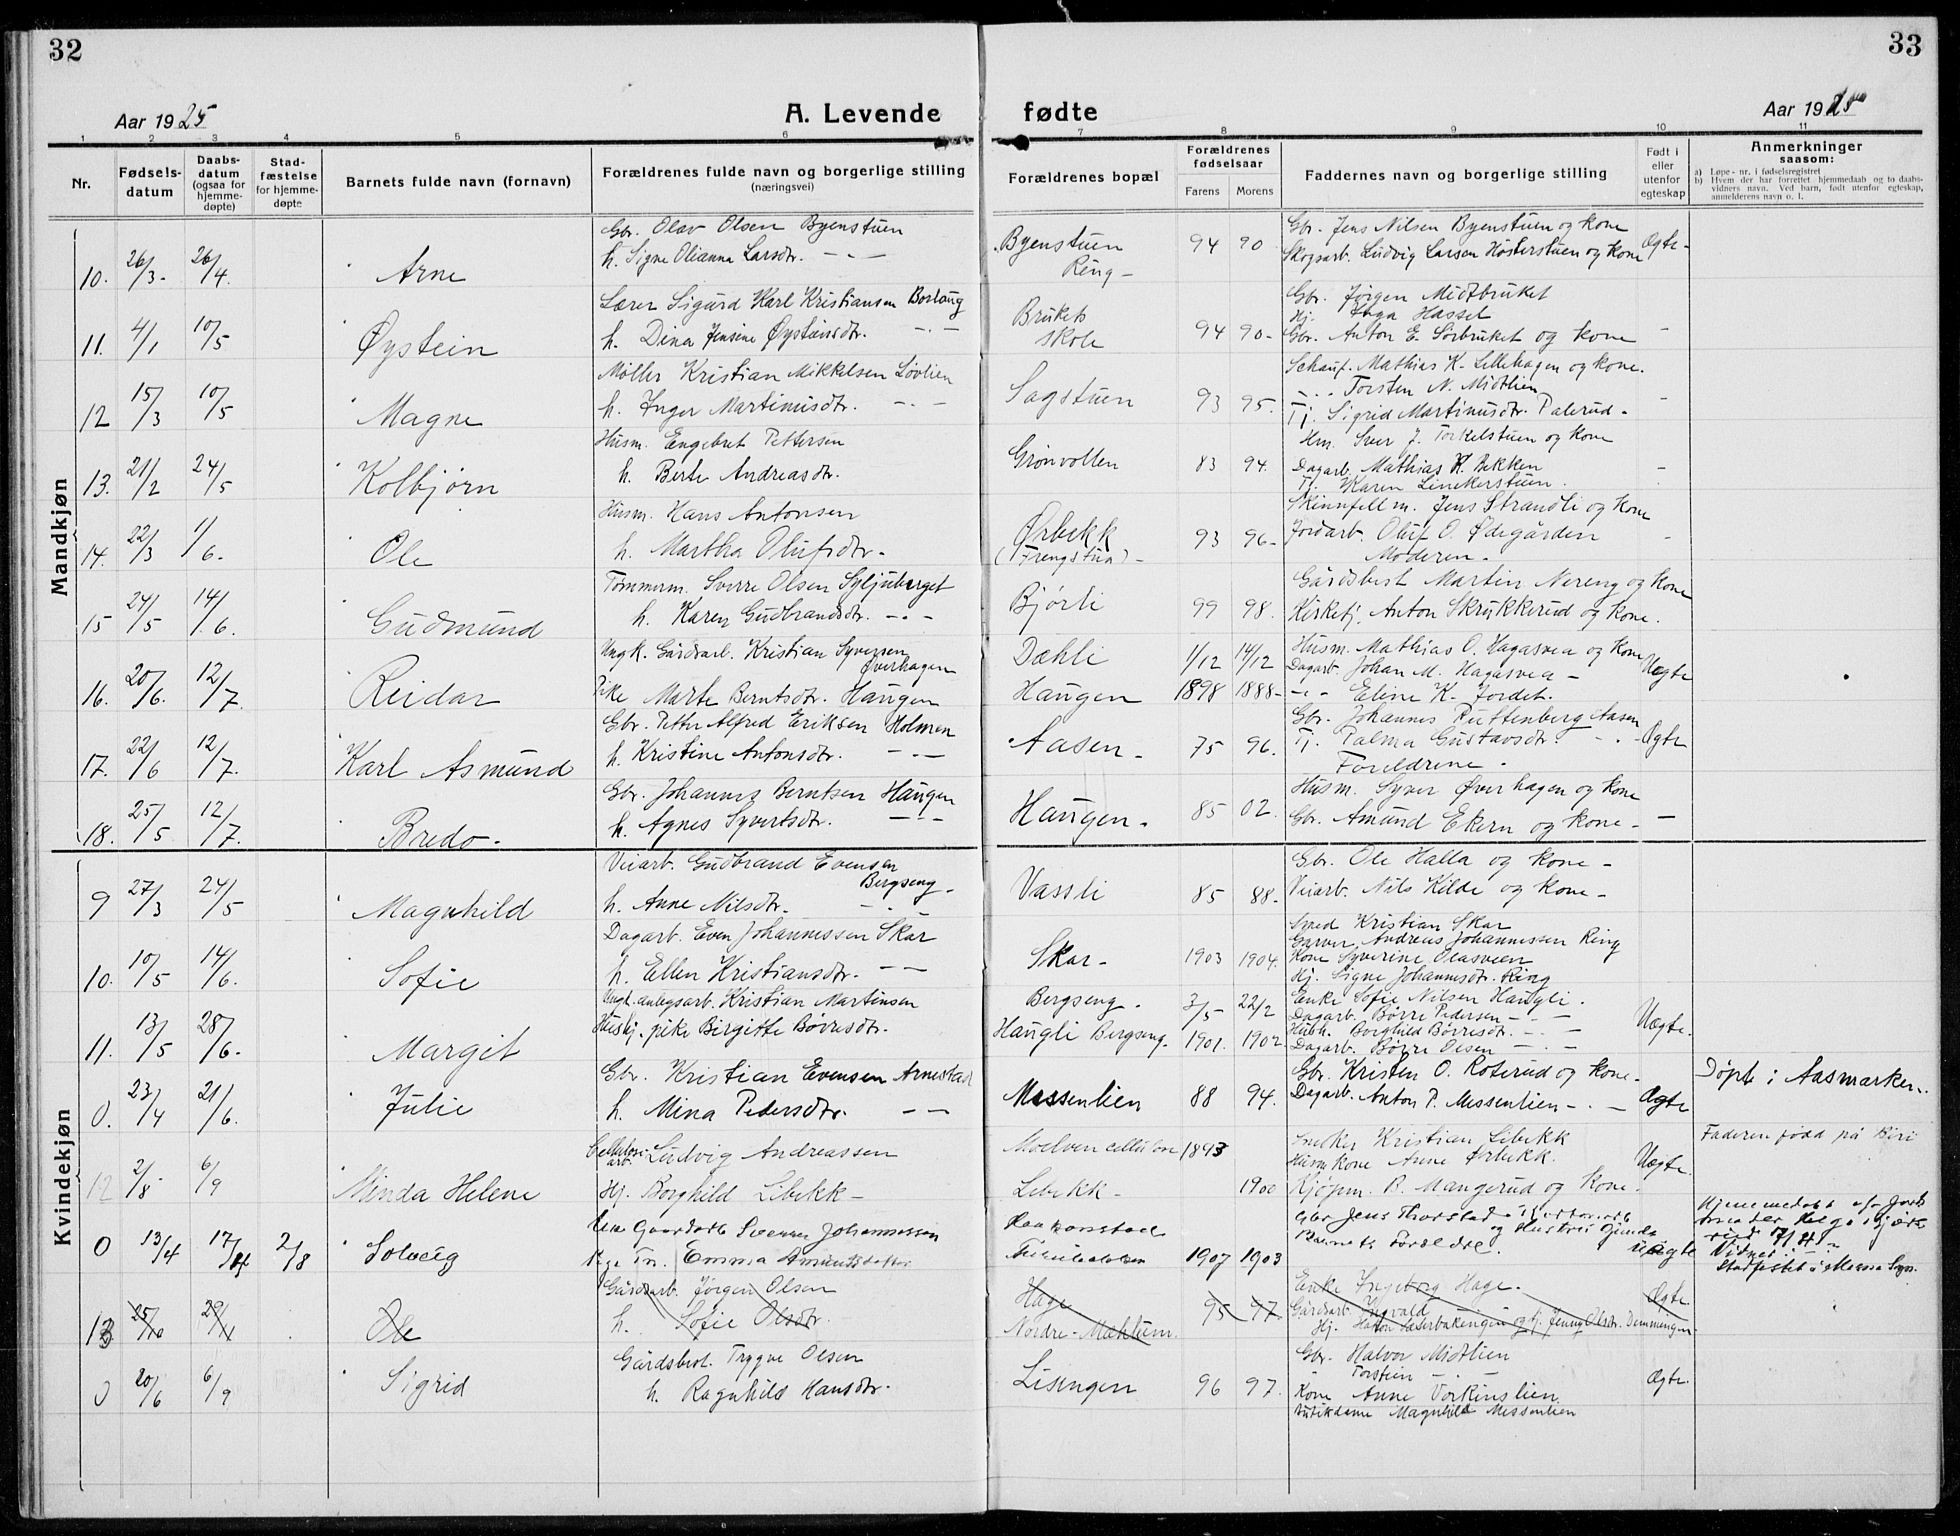 32
33
Aar 1925
A. Levende
fødte
Aar 1925
1 2 3 4 5 6 7 8 9 10 11
Nr.
Fødsels-
datum
Daabs-
datum
(ogsaa for
hjemme-
døpte)
Stad-
fæstelse
for hjemme-
døpte
Barnets fulde navn (fornavn)
Forældrenes fulde navn og borgerlige stilling
(næringsvei)
Forældrenes bopæl
Forældrenes
fødselsaar
Farens
Morens
Faddernes navn og borgerlige stilling
Født i
eller
utenfor
egteskap
Anmerkninger
saasom:
a) Løpe-nr. i fødselsregistret
b) Hvem der har forrettet hjemmedaab og to daabs-
vidners navn. Ved barn, født utenfor egteskap,
anmelderens navn o. l.
Mandkjøn
10. 26/3- 26/4. Arne
Gbr. Olav Olsen Byenstuen
h. Signe Olianna Larsdtr. -"-
Byenstuen
Ring-
94 90
Gbr. Jens Nilsen Byenstuen og kone
Skogsarb. Ludvig Larsen Høsterstuen og kone
Ægte-
11. 4/1 10/5 Øystein
Lærer Sigurd Karl Kristiansen Borlaug
h. Dina Jensine Øystensdtr. -"-
Brukets
skole
94 90-
Gbr. Jørgen Midtbruket
Hj. Inga Hassel
Gbr. Anton E. Sørbruket og kone
-
12 15/3 10/5 Magne
Møller Kristian Mikkelsen Løvlien
h. Inger Martinusdtr. -"-
Sagstuen
93 95.
Mathias K. Lillehagen og kone.
-"- Torsten N. Midtlien
Tj. Sigrid Martinusdtr. Palerud-
-
13. 21/2 24/5 Kolbjørn
Husm. Engebret Pettersen
h. Berte Andreasdtr.
Grønvollen
83 94.
Hm. Sver J. Torkelstuen og kone
Dagarb. Mathias K. Bekken
Tj. Karen Linekerstuen.
-
14. 22/3 1/6. Ole
Husm. Hans Antonsen
h. Martha Olufsdtr-
Ørbekk
(Frengstua)-
93 96-
Skinnfellm. Jens Strandli og kone
Jordarb. Oluf O. Ødegården
Moderen-
-
15 24/5 14/6. Gudmund
Tømmerm. Sverre Olsen Syljuberget
h. Karen Gudbrandsdtr. -"-
Bjørli
99 98.
Gårdsbest Martin Nereng og kone
Kirketj. Anton Skrukkerud og kone.
16. 20/6. 12/7. Reidar
Ungk. Gårdsarb. Kristian Syversen
Øverhagen
Pike Marte Berntsdtr. Haugen
Dæhli
Haugen
1/12 14/12
1898 1888-
Husm. Mathias O. Hagasvea og kone
Dagarb. Johan M. Hagasvea-
-"- Eline K. Jordet.
Uægte
17. 22/6 12/7. Karl Asmund
Gbr. Petter Alfred Eriksen Holmen
h. Kristine Antonsdtr. -"-
Aasen-
75 96.
Gbr. Johannes Ruttenberg Aasen
Tj. Palma Gustavsdtr. -"-
Foreldrene-
Ægte
18. 25/5 12/7. Bredo-
Gbr. Johannes Berntsen Haugen
h. Agnes Syvertsdtr. -"-
Haugen-
85 02.
Husm. Syver Øverhagen og kone
Gbr. Amund Ekern og kone-
-
Kvindekjøn
9 27/3 24/5 Magnhild
Veiarb. Gudbrand Evensen
Bergseng-
h. Anne Nilsdtr. -"-
Vassli
85 88-
Gbr. Ole Halla og kone-
Veiarb. Nils Kilde og kone-
10. 10/5 14/6. Sofie
Dagarb. Even Johannessen Skar
h. Ellen Kristiansdtr. -"-
Skar-
1903 1904.
Smed Kristian Skar
Garver Andreas Johannessen Ring
Kone Syverine Olasveen
Hj. Signe Johannesdtr. Ring
11. 13/5 28/6. Margit
Ungk. anlegsarb. Kristian Martinsen
Hushj. pike Birgitte Børresdtr.
Bergseng-
Haugli Bergseng-
3/5 22/2
1901. 1902.
Enke Sofie Nilsen Haugli.
Dagarb. Børre Pedersen -"-
Borghild Børresdtr. -"-
Dagarb. Børre Olsen -"-
Uægte.
0. 23/4 21/6. Julie
Gbr. Kristian Evensen Arnestad
h. Mina Pedersdtr. -"-
Messenlien
88 94.
Gbr. Kristen O. Roterud og kone-
Dagarb. Anton P. Messenlien-"-
Ægte
Døpt i Aasmarken.
12 2/8 6/9 Minda Helene
Cellulosearb. Ludvig Andreassen
Hj. Borghild Libekk-
Moelven cellulose
Lebekk-
1893
1900
Snekker Kristian Libekk
Husm kone Anne Ørbekk.
Kjøpm. B. Mangerud og kone.
Uægte.
Faderen fødd på Biri
0 13/4 17/4 2/8 Solveig
Gaardarb Svenn Johannessen
Pige Tn. Emma Amundsdatter
1907 1903
Gbr Jens Thorstad
og Hustru Gunda
Barnets Forældre.
uægte
Hjemmedøbt af Jord
moder Helga
Vidner
Stadfestet i Messe
13 25/10 29/11 Ole
Gårdsarb. Jørgen Olsen
h. Sofie Olsdtr.
Hage
Nordre-Mæhlum.
95 97
Enke Ingeborg Hage-
Gårdsarb. Ingvald
Hj. og hj. Jenny Olsdtr. Demmengen-
Ægte.
0 20/6 6/9 Sigrid
Gårdsbest. Trygve Olsen
h. Ragnhild Hansdtr-
Lisengen
96 97.
Gbr. Halvor Midtlien
Torstein -"-
Kone Anne Vorkinslien
Butikdame Magnhild Messenlien
Ægte.